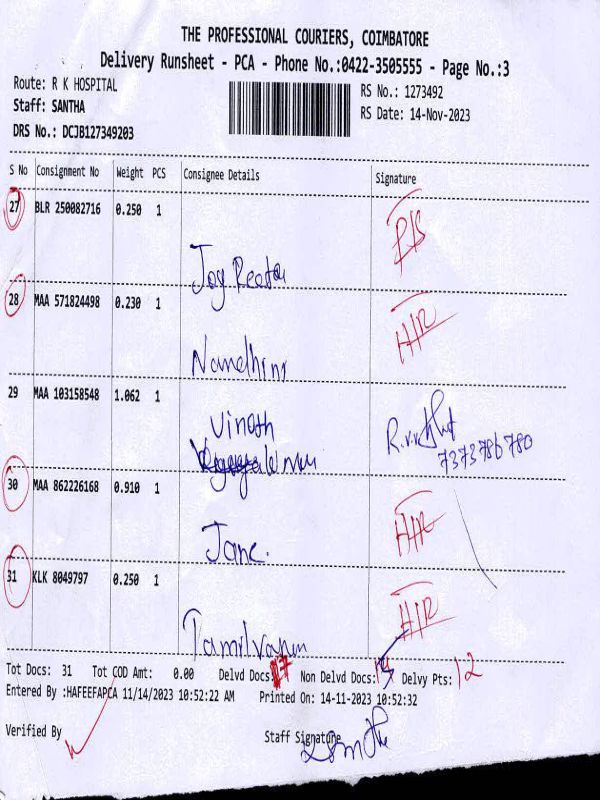 THE PROFESSIONAL COURIERS, COIMBATORE
Delivery Runsheet - PCA - Phone No.:0422-3505555 - Page No.:3
Route: R K HOSPITAL
RS No.: 1273492
Staff: SANTHA
RS Date: 14-Nov-2023
DRS No.: DCJB127349203
S No Consignment No Weight PCS Consignee Details Signature
27 BLR 250082716 0.250 1
Joy Reeta
28 MAA 571824498 0.230 1 H/R
Nandhini
29 MAA 103158548 1.062 1
Vinoth
7373786780
30 MAA 862226168 0.910 1 H/R
Jane.
31 KLK 8049797 0.250 1 H/R
Tamilvanan
Tot Docs: 31 Tot COD Amt: 0.00 Delvd Docs: 17 Non Delvd Docs: 14 Delvy Pts: 12
Entered By :HAFEEFAPCA 11/14/2023 10:52:22 AM Printed On: 14-11-2023 10:52:32
Verified By Staff Signature